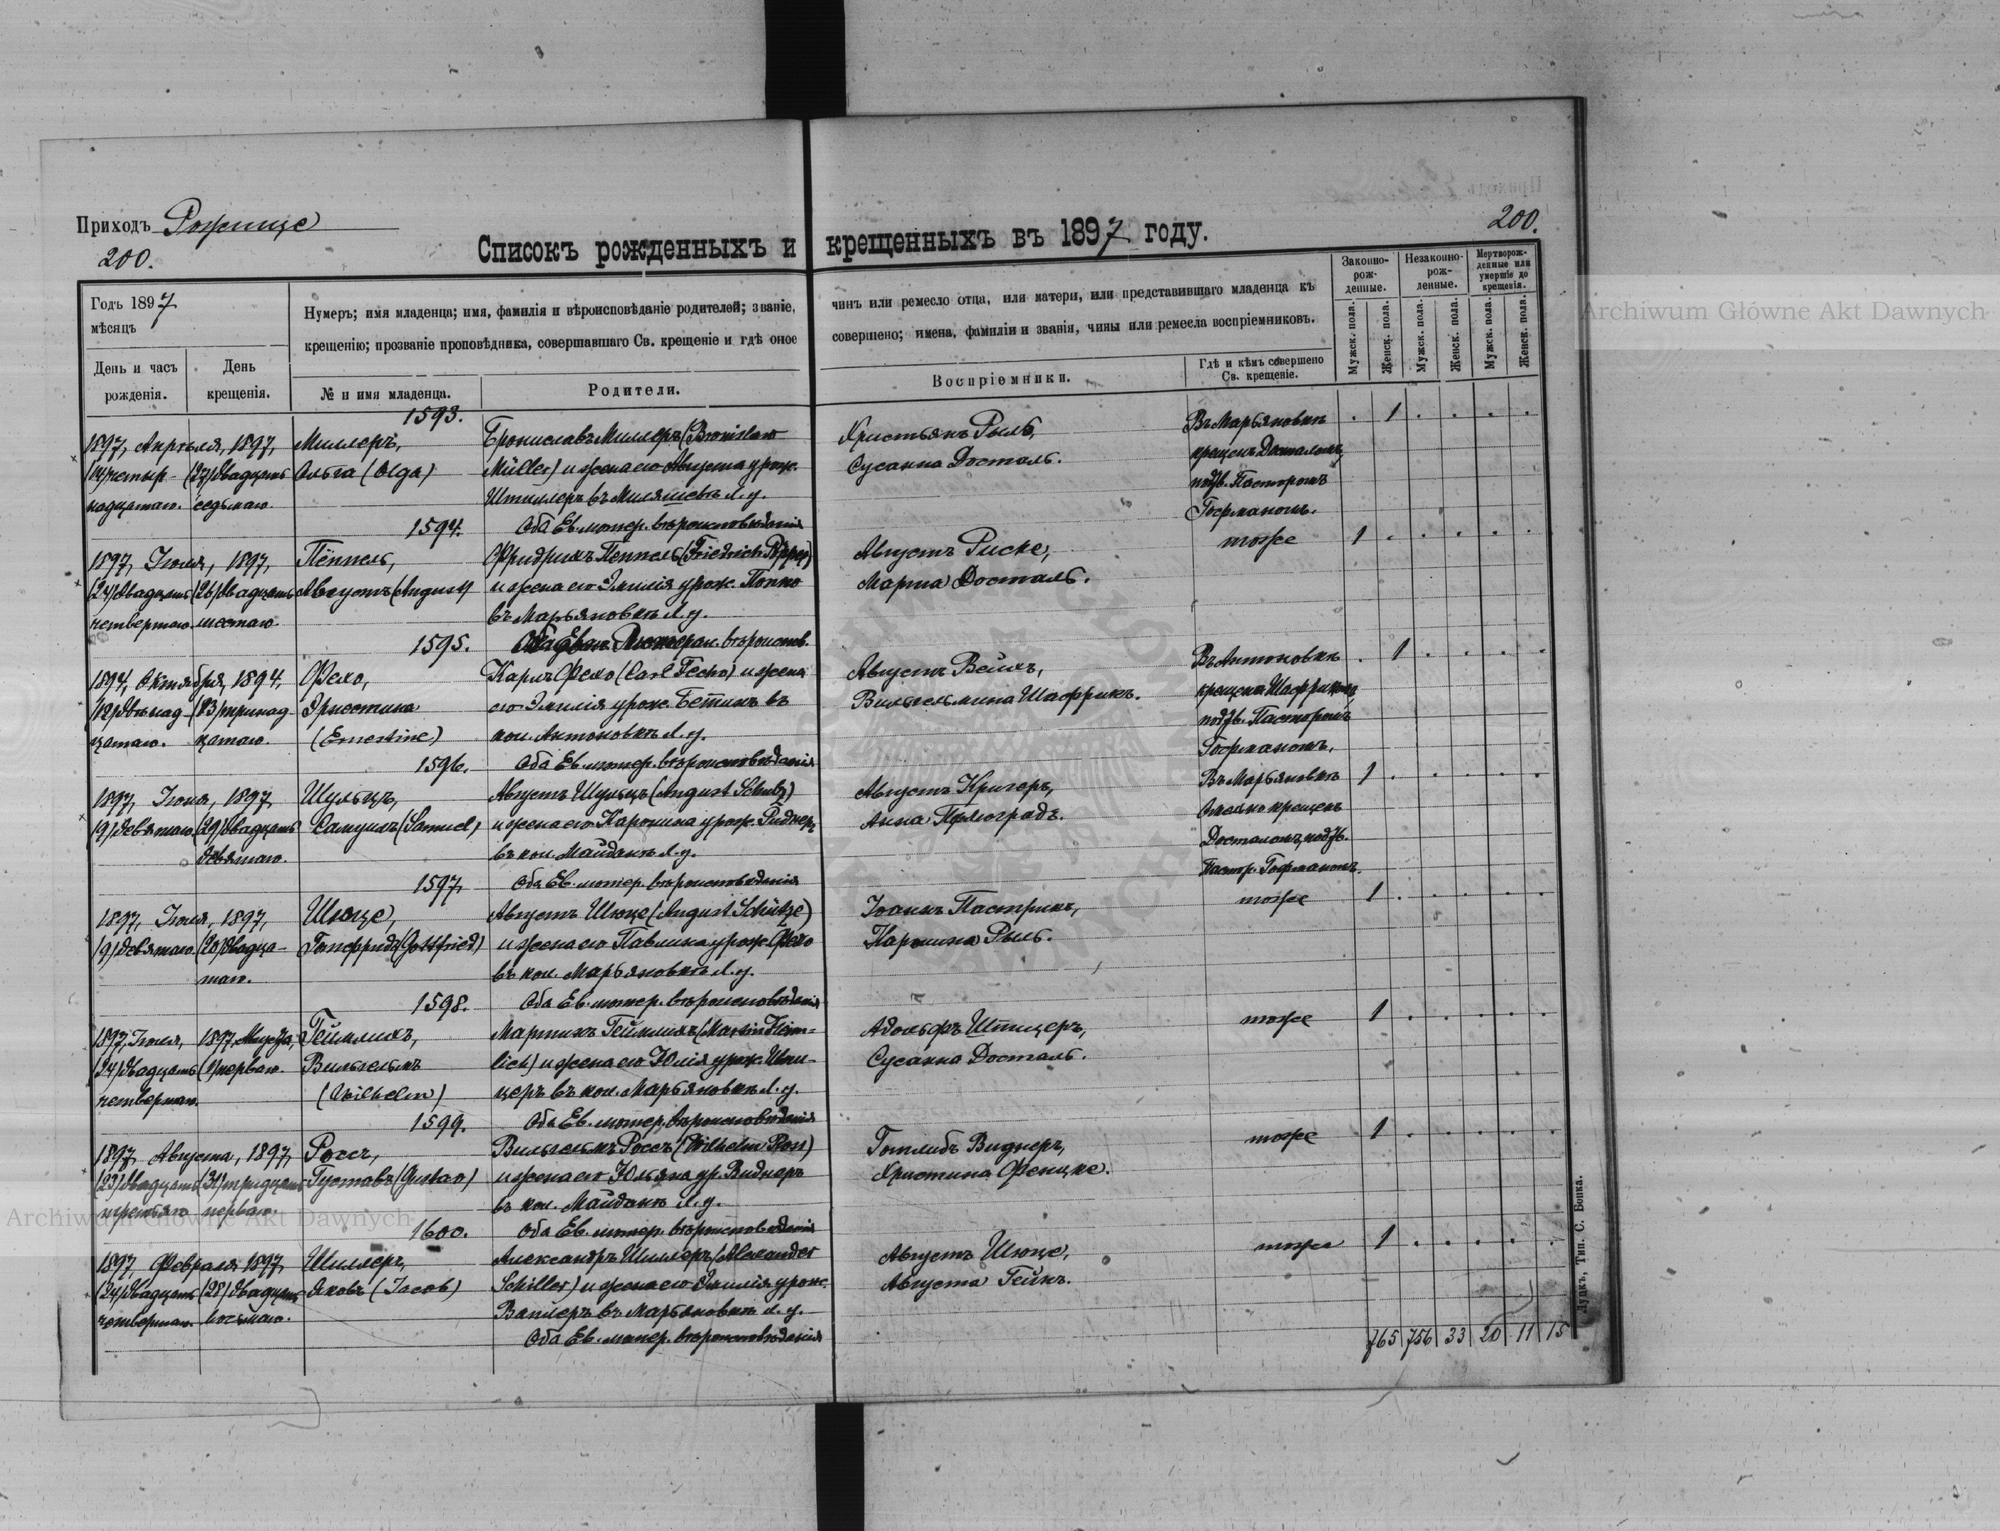 Приходъ Рожище
200.
200.
Списокъ рожденныхъ и крещенныхъ въ 1897 году.
Годъ 1897
мѣсяцъ
День и часъ рожденія.
День крещенія.
Нумеръ; имя младенца; имя, фамилія и вѣроисповѣданіе родителей; званіе, чинъ или ремесло отца, или матери, или представившаго младенца къ
крещенію; прозваніе проповѣдника, совершавшаго Св. крещеніе и гдѣ оное совершено; имена, фамиліи и званія, чины или ремесла воспріемниковъ.
№ и имя младенца.
Родители.
Воспріемники.
Гдѣ и кѣмъ совершено Св. крещеніе.
Законно-рож-денные.
Незаконно-рож-ленные.
Мертворож-денные или умершіе до крещенія.
Мужск. пола.
Женск. пола.
Мужск. пола.
Женск. пола.
Мужск. пола.
Женск. пола.
1593.
1897, Апрѣля, 1897, Миллеръ, Брониславъ Миллеръ (Bronislaw Христьянъ Рыль, Въ Марьяновкѣ . 1 . . . .
(14) четыр- (27) двадцать Ольга (Olga) Müller) и жена его Августа урож. Сусанна Досталь. крещенъ Досталомъ,
надцатаго. седьмаго. Штиллеръ въ Миляшевѣ Л. у. подтв. Пасторомъ
1594. Оба Ев. лютер. вѣроисповѣданія Гофманомъ.
1897, Іюля, 1897, Пёппель, Фридрихъ Пеппель (Friedrich Pöppel) Августъ Риске, тоже 1 . . . . .
(24) двадцать (26) двадцать Августъ (August) и жена его Эмилія урож. Попко Марта Досталь.
четвертаго. шестаго. въ Марьяновкѣ Л. у.
1595. Оба Еван. Лютеран. вѣроиспов.
1894, Октября, 1894, Фехо, Карлъ Фехо (Carl Fecho) и жена Августъ Вейхъ, Въ Антоновкѣ . 1 . . . .
(12) двѣнад- (13) тринад- Эрнестина его Эмилія урож. Бетинъ въ Вильгельмина Шаффрикъ. крещена Шаффрикомъ,
цатаго. цатаго. (Ernestine) кол. Антоновкѣ Л. у. подтв. Пасторомъ
1596. Оба Ев. лютер. вѣроисповѣданія Гофманомъ.
1897, Іюля, 1897, Шульцъ, Августъ Шульцъ (August Schulz) Августъ Кригеръ, Въ Марьяновкѣ 1 . . . . .
(9) девятаго (29) двадцать Самуилъ (Samuel) и жена его Каролина урож. Риднеръ Анна Прлоградъ. крещенъ
девятаго. въ кол. Майданѣ Л. у. Досталомъ, подтв.
1597, Оба Ев. лютер. вѣроисповѣданія Пастр. Гофманомъ.
1897, Іюля, 1897, Шюце, Августъ Шюце (August Schütze) Іоаннъ Пастрикъ, тоже 1 . . . . .
(9) девятаго (20) двадца- Готфридъ (Gottfried) и жена его Павлина урож. Фехо Каролина Рыль.
таго. въ кол. Марьяновкѣ Л. у.
1598. Оба Ев. лютер. вѣроисповѣданія
1897, Іюля, 1897, Геймлихъ, Мартинъ Геймлихъ (Martin Heim- Адольфъ Шпицеръ, тоже 1 . . . . .
(24) двадцать (1) перваго. Вильгельмъ lich) и жена его Юлія урож. Шпи- Сусанна Досталь.
четвертаго. (Wilhelm) церъ въ кол. Марьяновкѣ Л. у.
1599. Оба Ев. лютер. вѣроисповѣданія
1897, Августа, 1897, Россъ, Вильгельмъ Россъ (Wilhelm Ross) Готлибъ Виднеръ, тоже 1 . . . . .
(23) двадцать (31) тридцать Густавъ (Gustav) и жена его Юльяна ур. Виднеръ Христина Фенцке.
третьяго перваго. въ кол. Майданѣ Л. у.
1600. Оба Ев. лютер. вѣроисповѣданія
1897 Февраля 1897, Шиллеръ, Александръ Шиллеръ (Alexander Августъ Шюце, тоже 1 . . . . .
(24) двадцать (28) двадцать Яковъ (Jacob) Schiller) и жена его Эмилія урож. Августа Гейнъ.
четвертаго. восьмаго. Ваплеръ въ Марьяновкѣ Л. у.
Оба Ев. лютер. вѣроисповѣданія
765 756 33 20 11 15
Луцкъ, Тип. С. Бонка.
Archiwum Główne Akt Dawnych
Archiwum Główne Akt Dawnych